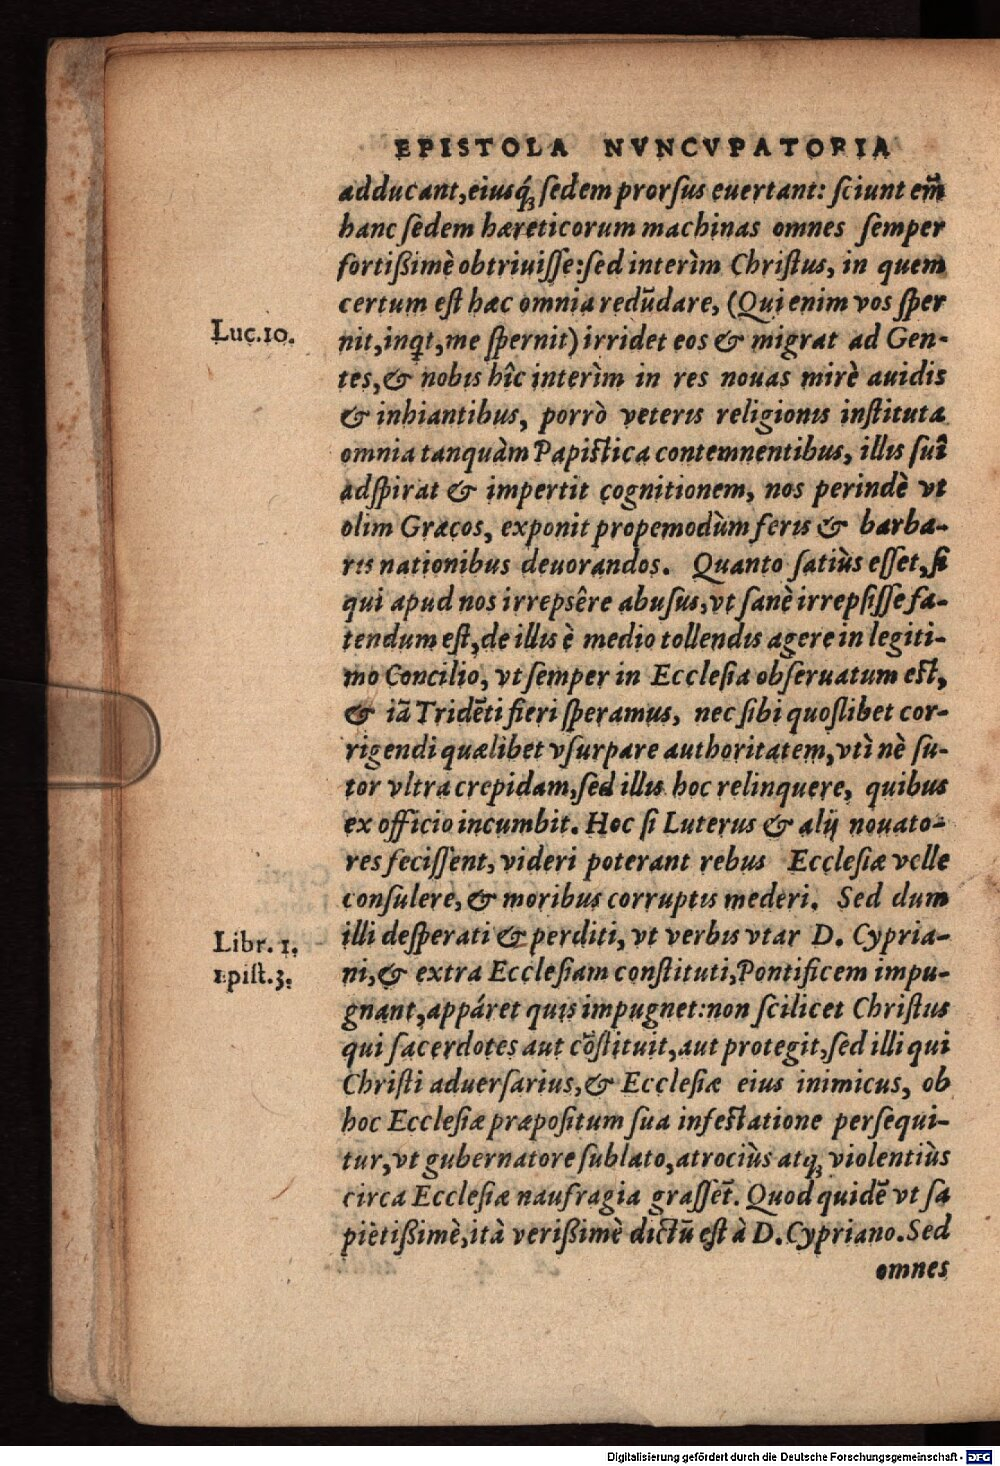 EPISTOLA NVNCVPATORIA
adducant, eiusq́ꝫ ſedem prorſus euertant: ſciunt em̃
hanc ſedem hæreticorum machinas omnes ſemper
fortißimè obtriuiſſe: ſed interìm Chriſtus, in quem
certum eſt hæc omnia redũdare, (Qui enim vos ſper
Luc. 10.
nit, inqt, me ſpernit) irridet eos & migrat ad Gen-
tes, & nobis hîc interìm in res nouas mirè auidis
& inhiantibus, porrò veteris religionis inſtituta
omnia tanquàm Papiſtica contemnentibus, illis ſuî
adſpirat & impertit cognitionem, nos perindè vt
olim Græcos, exponit propemodùm feris & barba-
ris nationibus deuorandos. Quanto ſatiùs eſſet, ſi
qui apud nos irrepsêre abuſus, vt ſanè irrepſiſſe fa-
tendum eſt, de illis è medio tollendis agere in legiti-
mo Concilio, vt ſemper in Eccleſia obſeruatum eſt,
& iã Tridẽti fieri ſperamus, nec ſibi quoſlibet cor-
rigendi quælibet vſurpare authoritatem, vtì nè ſu-
tor vltra crepidam, ſed illis hoc relinquere, quibus
ex officio incumbit. Hoc ſi Luterus & alij nouato-
res feciſſent, videri poterant rebus Eccleſiæ velle
conſulere, & moribus corruptis mederi. Sed dum
Libr. 1.
Epiſt. 3.
illi deſperati & perditi, vt verbis vtar D. Cypria-
ni, & extra Eccleſiam conſtituti, Pontificem impu-
gnant, appáret quis impugnet: non ſcilicet Chriſtus
qui ſacerdotes aut cõſtituit, aut protegit, ſed illi qui
Chriſti aduerſarius, & Eccleſiæ eius inimicus, ob
hoc Eccleſiæ præpoſitum ſua infeſtatione perſequi-
tur, vt gubernatore ſublato, atrociùs atqꝫ violentiùs
circa Eccleſiæ naufragia graſſet̃. Quod quidẽ vt ſa
pientißimè, ità verißimè dictũ eſt à D. Cypriano. Sed
omnes
Digitalisierung gefördert durch die Deutsche Forschungsgemeinschaft - DFG